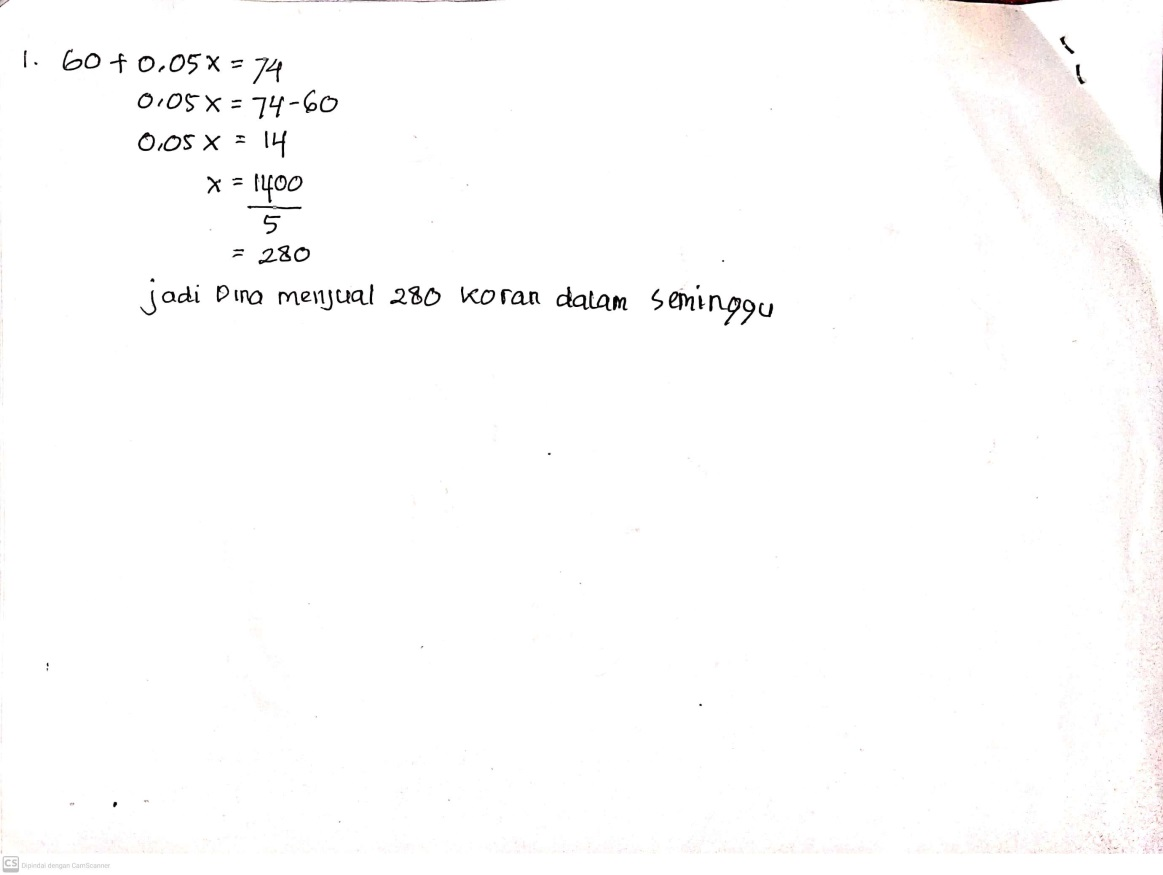 1. 60 + 0.05x = 74
0.05x = 74-60
0.05x = 14
x = 1400
5
= 280
jadi Dina menjual 280 koran dalam seminggu
CS Dipindai dengan CamScanner